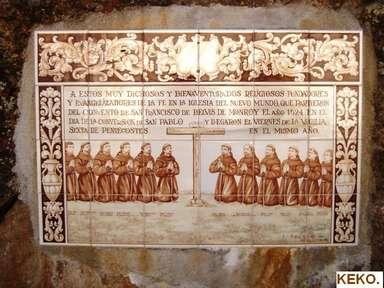 A ESTOS MUY DICHOSOS Y BIENAVENTURADOS RELIGIOSOS FUNDADORES
Y EVANGELIZADORES DE LA FE EN LA IGLESIA DEL NUEVO MUNDO, QUE PARTIERON
DEL CONVENTO DE SAN FRANCISCO DE BELVIS DE MONROY EL AÑO 1524 EN EL
DIA DE LA CONVERSION DE SAN PABLO Y LLEGARON EL VIERNES DE LA VIGILIA
SEXTA DE PENTECOSTES EN EL MISMO AÑO.
KEKO.